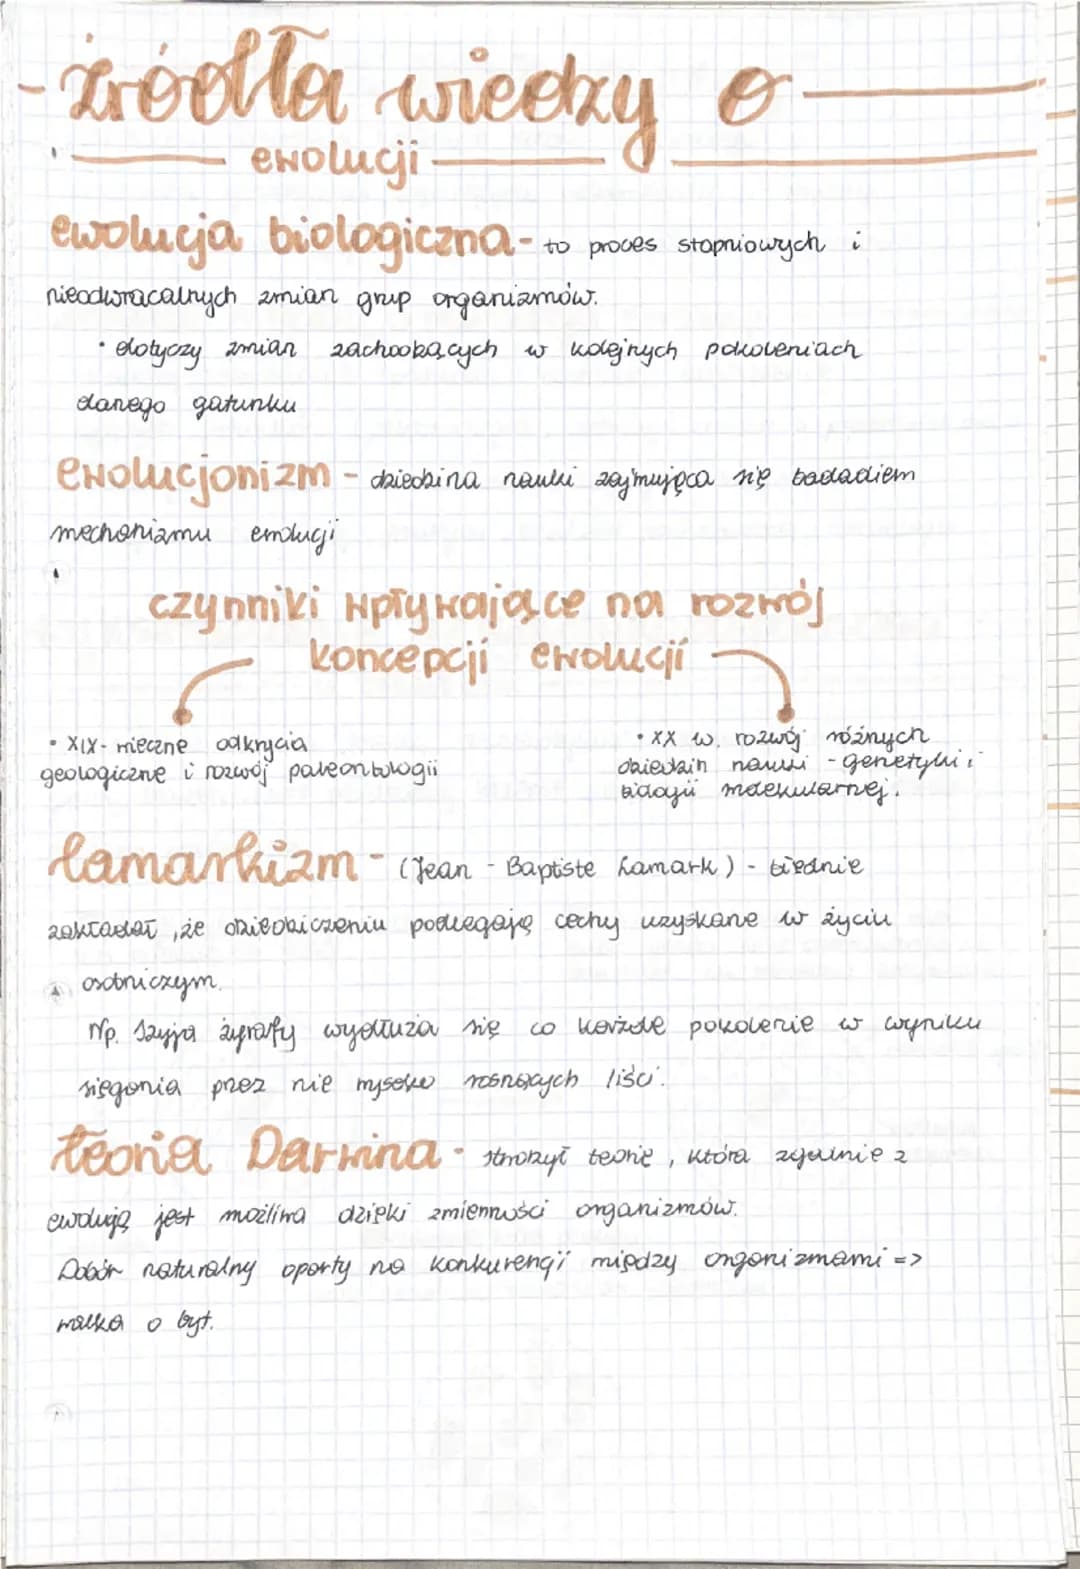 - źródła wiedzy o
ewolucji
ewolucja biologiczna - to proces stopniowych i
nieodwracalnych zmian grup organizmów.
• dotyczy zmian zachodzących w kolejnych pokoleniach
danego gatunku
ewolucjonizm - dziedzina nauki zajmująca się badadiem
mechanizmu ewolucji
czynniki wpływające na rozwój
koncepcji ewolucji
• XIX- wieczne odkrycia
geologiczne i rozwój paleontologii
• XX w. rozwój różnych
dziedzin nauki - genetyki i
biologii molekularnej.
lamarkizm - (Jean - Baptiste Lamark) - błędnie
zakładał, że dziedziczeniu podlegają cechy uzyskane w życiu
osobniczym.
Np. Szyja żyrafy wydłuża się co każde pokolenie w wyniku
sięgania przez nie wysoko rosnących liści.
teoria Darwina - stworzył teorię, która zgodnie z
ewolucją jest możliwa dzięki zmienności organizmów.
Dobór naturalny oparty na konkurencji między organizmami =>
walka o byt.